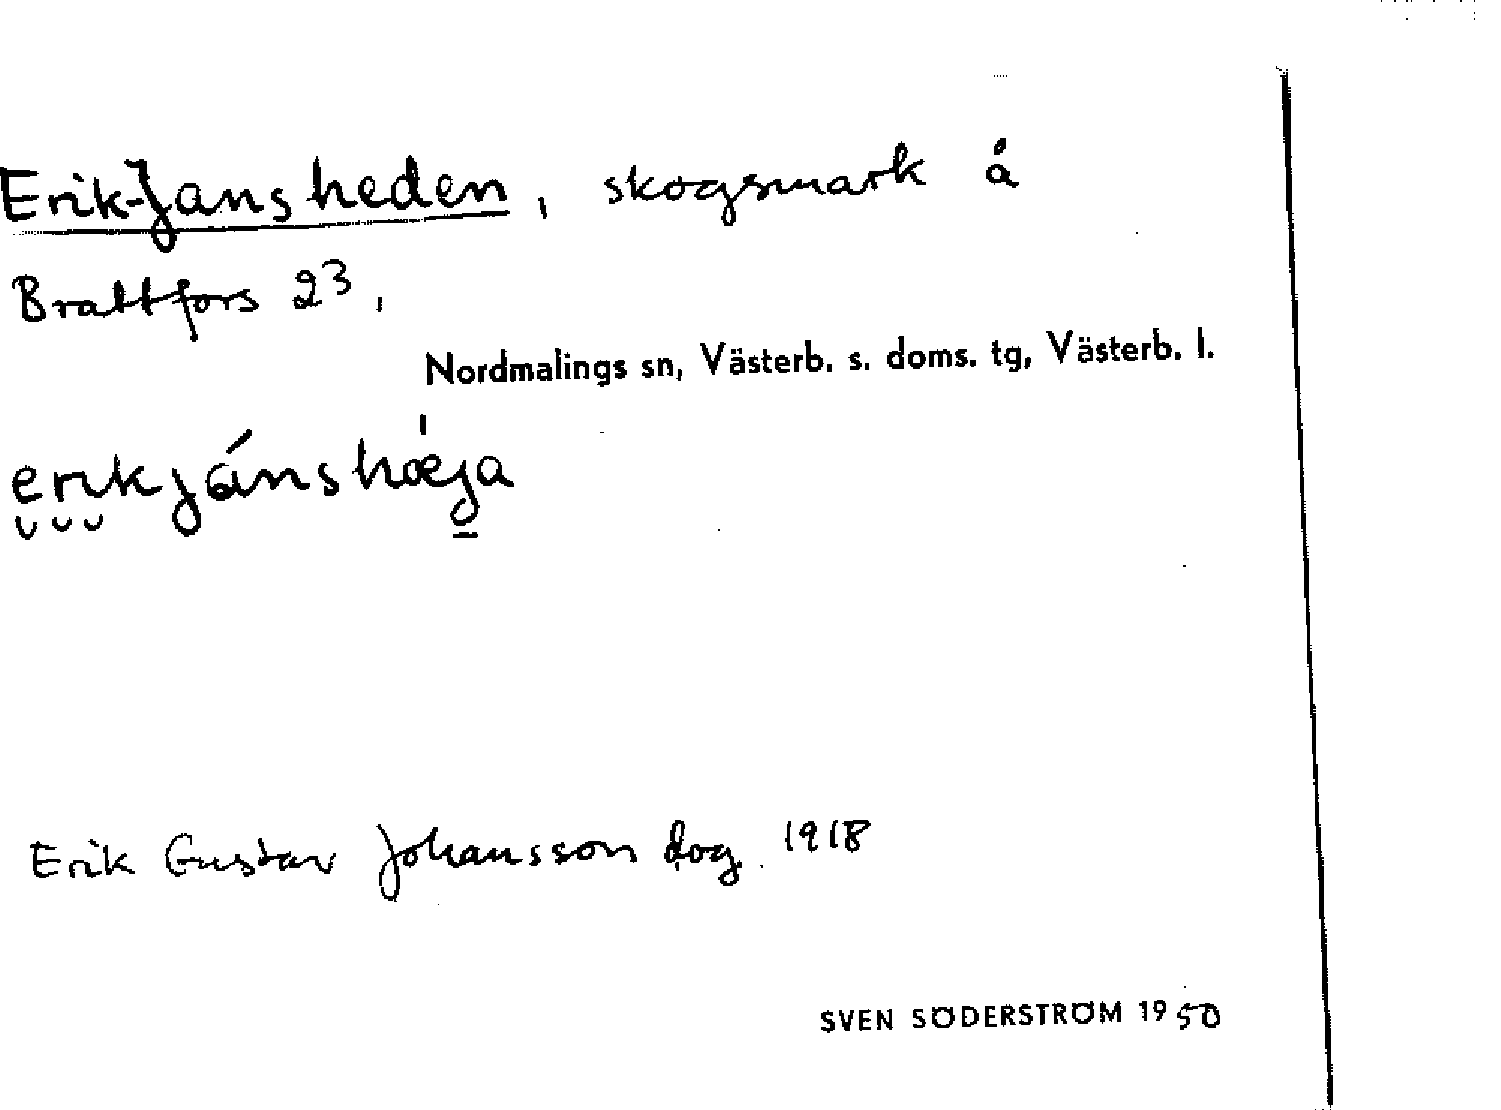 Erik-Jansheden, skogsmark å
Brattfors 23,
Nordmalings sn, Västerb. s. doms. tg, Västerb. l.
erikjánshæja
Erik Gustav Johansson dog 1918
SVEN SÖDERSTRÖM 1950